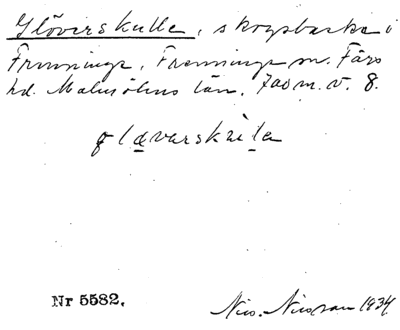 Glöverskulle, skogsbacke i
Frenninge, Frenninge sn. Färs
hd. Malmöhus län. 700 m. v. 8.
glavarskula
Nr 5582.
Nils. Nilsson 1934